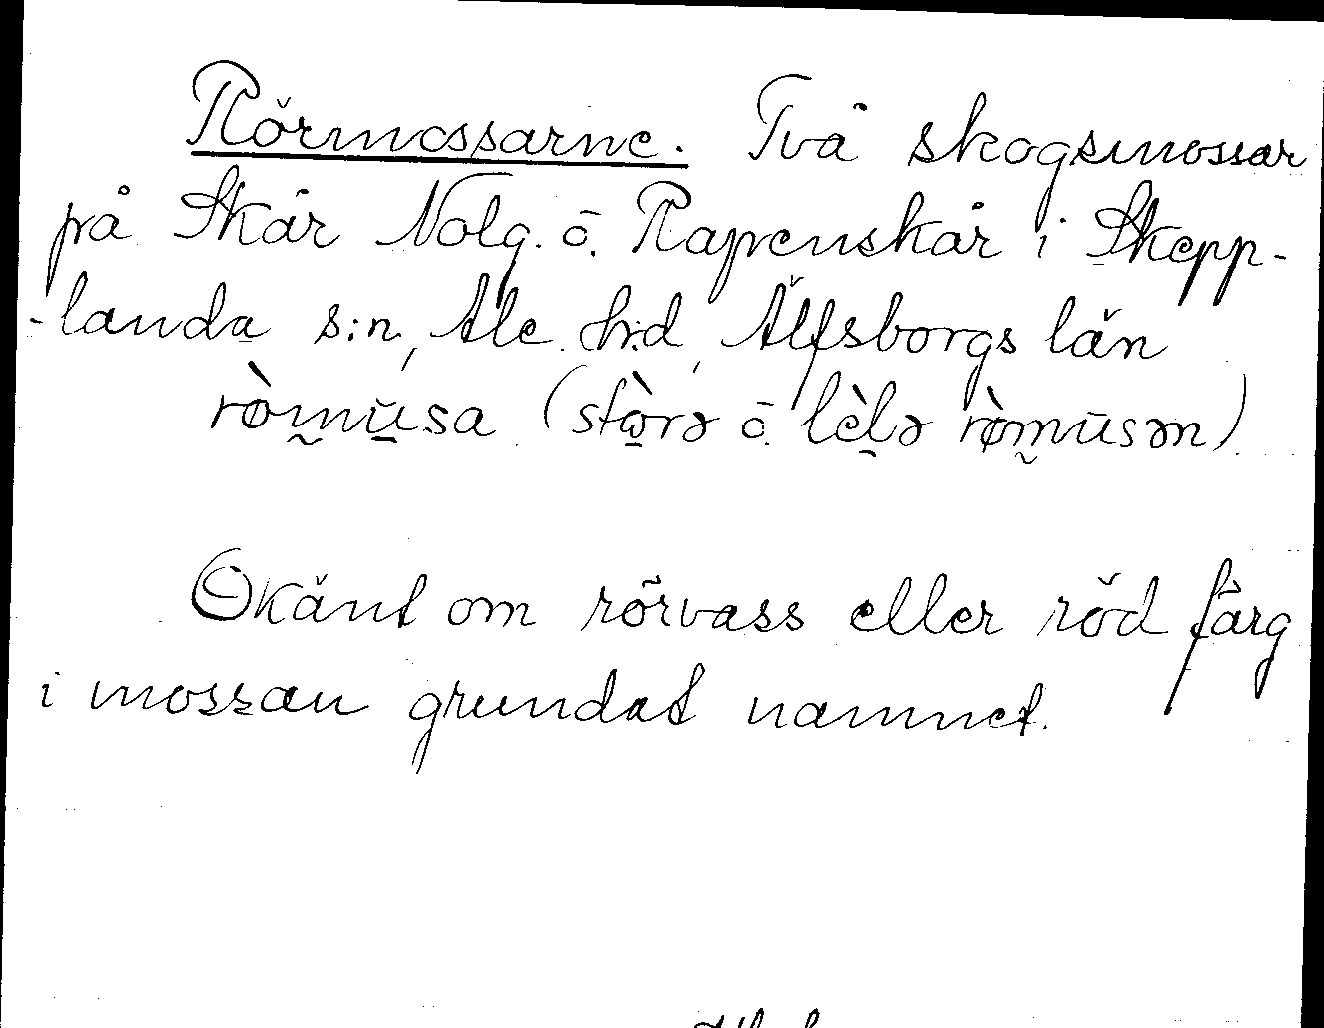 Rörmossarne. Två skogsmossar
på Skår Nolg. ō. Rapenskår i Skepp-
-landa s:n, Ale h:d, Älfsborgs län
rò̤mṳ̄sa (stò̤rə ō. lè̤lə rò̤mūsən)
Okänt om rörvass eller röd färg
i mossan grundat namnet.